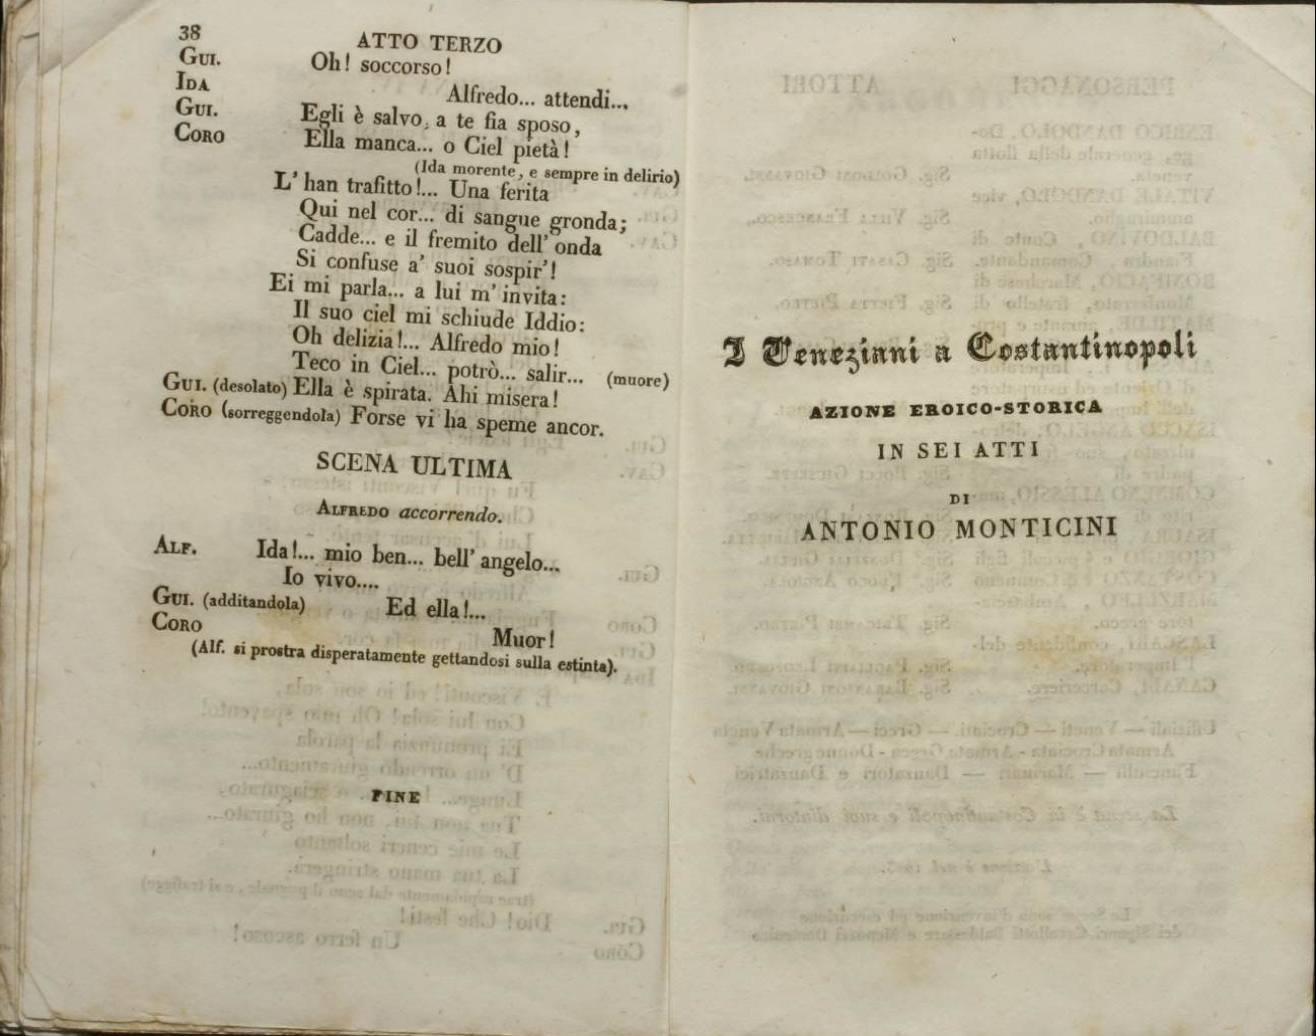 38
ATTO TERZO
GUI. Oh! soccorso!
IDA Alfredo... attendi...
GUI. Egli è salvo, a te fia sposo,
CORO Ella manca... o Ciel pietà!
(Ida morente, e sempre in delirio)
L' han trafitto!... Una ferita
Qui nel cor... di sangue gronda;
Cadde... e il fremito dell' onda
Si confuse a' suoi sospir'!
Ei mi parla... a lui m' invita:
Il suo ciel mi schiude Iddio:
Oh delizia!... Alfredo mio!
Teco in Ciel... potrò... salir... (muore)
GUI. (desolato) Ella è spirata. Ahi misera!
CORO (sorreggendola) Forse vi ha speme ancor.
SCENA ULTIMA
ALFREDO accorrendo.
ALF. Ida!... mio ben... bell' angelo...
Io vivo....
GUI. (additandola) Ed ella!...
CORO Muor!
(Alf. si prostra disperatamente gettandosi sulla estinta).
FINE
I Veneziani a Costantinopoli
AZIONE EROICO-STORICA
IN SEI ATTI
DI
ANTONIO MONTICINI